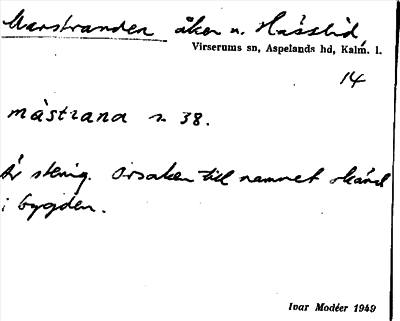 Marstranden åker n. Hässlid,
Virserums sn, Aspelands hd, Kalm. l.
14
màstrana n 38.
Är stenig. Orsaken till namnet okänd
i bygden.
Ivar Modéer 1949